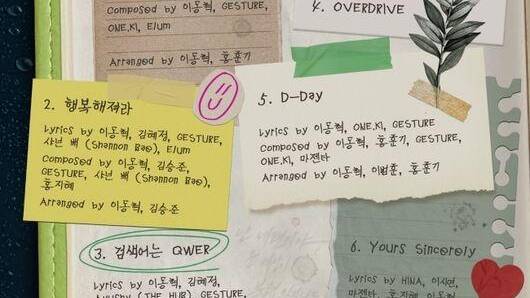 Composed by 이동혁, GESTURE,
ONE.KI, Elum
Arranged by 이동혁, 홍훈기
2. 행복해져라
Lyrics by 이동혁, 김혜정, GESTURE,
샤넌 배 (Shannon Bae), Elum
Composed by 이동혁, 김승준,
GESTURE, 샤넌 배 (Shannon Bae),
홍지혜
Arranged by 이동혁, 김승준
3. 검색어는 QWER
Lyrics by 이동혁, 김혜정,
(THE HUB) GESTURE,
4. OVERDRIVE
5. D-Day
Lyrics by 이동혁, ONE.KI, GESTURE
Composed by 이동혁, 홍훈기, GESTURE,
ONE.KI, 마젠타
Arranged by 이동혁, 이범훈, 홍훈기
6. Yours Sincerely
Lyrics by HINA, 이시연,
마젠타, 이동혁